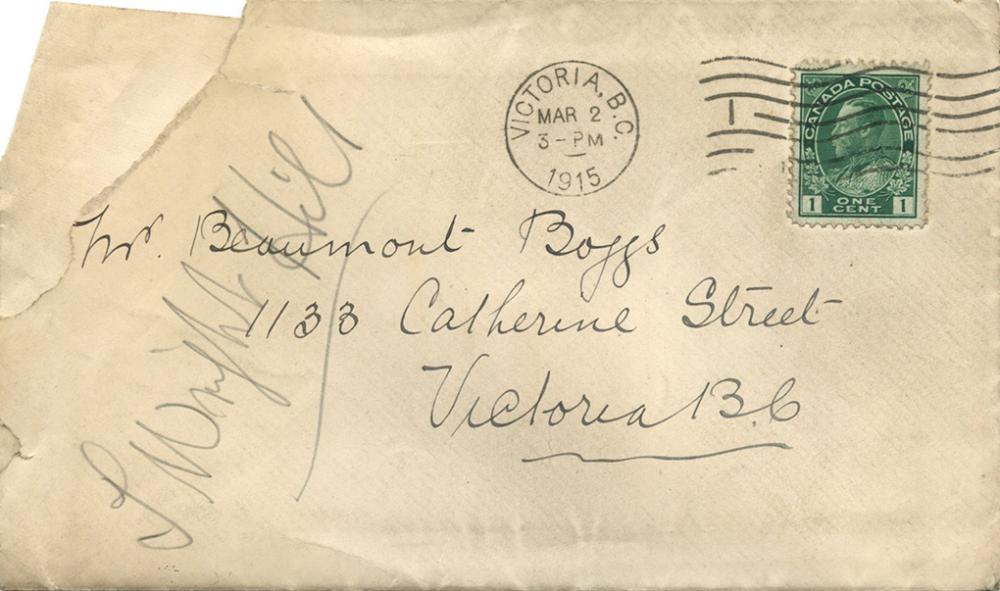 VICTORIA, B.C.
MAR 2
3-PM
1915
CANADA POSTAGE
1 ONE CENT 1
Mr. Beaumont Boggs
1133 Catherine Street
Victoria B.C
Wright Hill